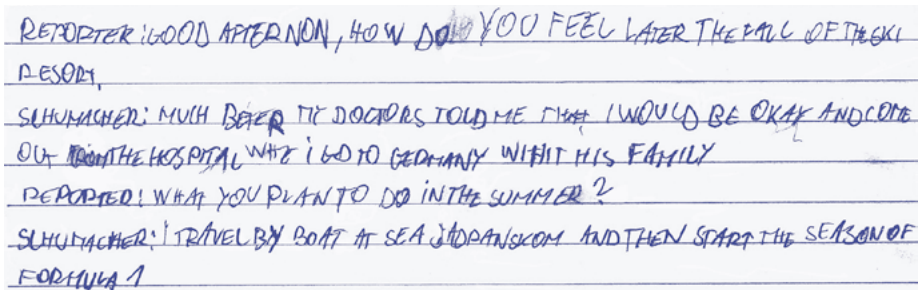 REPORTER: GOOD AFTERNON, HOW DO YOU FEEL LATER THE FALL OF THE SKI
RESORT,
SCHUMACHER: MUCH BETER MY DOCTORS TOLD ME THAT I WOULD BE OKAY AND COME
OUT FROM THE HOSPITAL I GO TO GERMANY WITHT HIS FAMILY
REPORTER: WHAT YOU PLAN TO DO IN THE SUMMER?
SCHUMACHER: I TRAVEL BY BOAT AT SEA JADRANSKOM AND THEN START THE SEASON OF
FORMULA 1